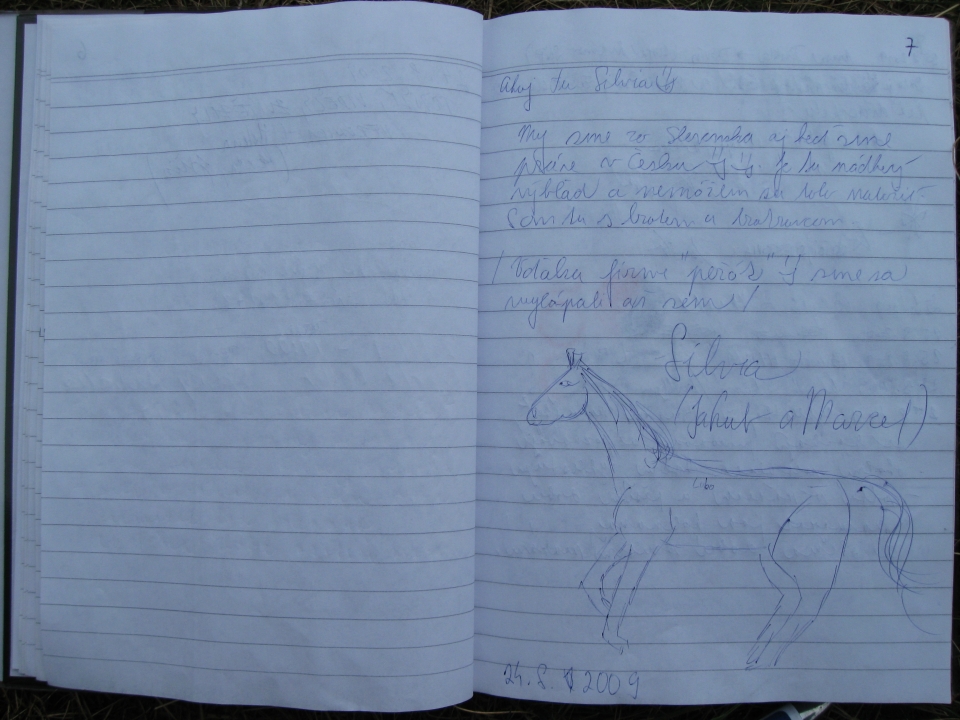 7
Ahoj tu Silvia
My sme zo Slovenska aj keď sme
práve v Česku :) :). Je tu nádherný
výhľad a nemôžem sa toho nabažiť.
Som tu s bratom a bratrancom.
/ Vďaka firme "peňáz" :) sme sa
vyšlapali až sem! /
Silvia
(Jakub a Marcel)
24. 8. 2009
6